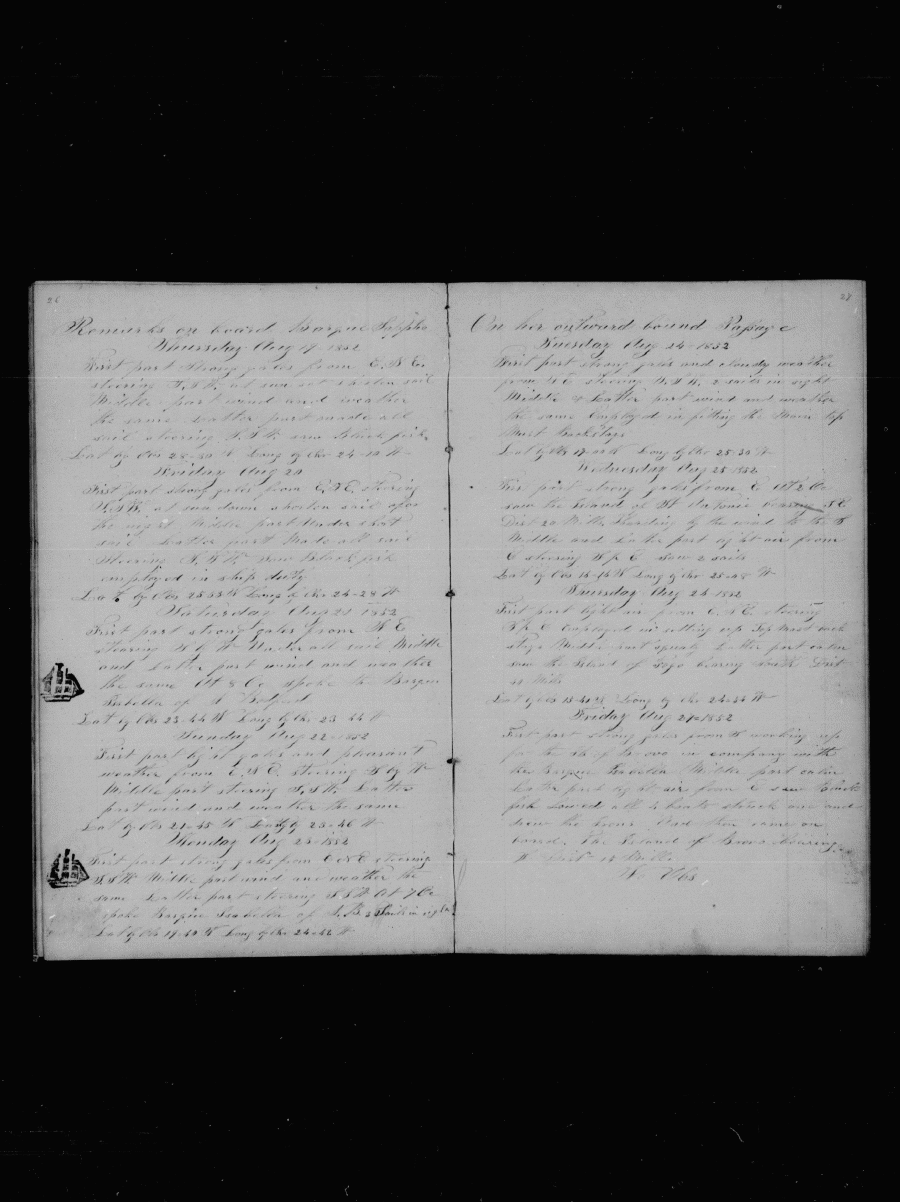 26
Remarks on board Barque Sappho
Thursday Aug 19 1852
First part strong gales from E.N.E.
steering S.S.W. at sun set shorten sail
Middle part wind and weather
the same Latter part made all
sail steering S.S.W. saw Black fish
Lat by Obs 28-30 N Long by Chr 24-10 W
Friday Aug 20
First part strong gales from E.N.E. steering
S.S.W. at sun down shorten sail
the night Middle part Under short
sail Latter part Made all sail
Steering S.S.W. Saw Black fish
employed in ship duty
Lat by Obs 25-53 N Long by Chr 24-28 W
Saturday Aug 21 1852
First part strong gales from N.E.
steering S by W Under all sail Middle
and Latter part wind and weather
the same At 8 Oc spoke the Barque
Isabella of N Bedford
Lat by Obs 23-44 N Long by Chr 23-44 W
Sunday Aug 22-1852
First part light gales and pleasant
weather from E.N.E. steering S by W
Middle part steering S.S.W. Latter
part wind and weather the same
Lat by Obs 21-45 N Long by 23-46 W
Monday Aug 23-1852
First part strong gales from E N E steering
S.S.W. Middle part wind and weather the
same Latter part steering S S W At 7 Oc
spoke Barque Isabella of N.B. 2 Sails in sight
Lat by Obs 19-40 N Long by Chr 24-42 W
27
On her outward bound Passage
Tuesday Aug 24-1852
First part strong gales and cloudy weather
from N E steering 2 sails in sight
Middle & Latter part wind and weather
the same Employed in fitting the Main top
Mast backstays
Lat by Obs 17-00 N Long by Chr 25-30 W
Wednesday Aug 25-1852
First part strong gales from E At 2 Oc
saw the Island of St Antonio bearing S.E.
Dist 20 Miles by the wind to the S
Middle and Latter part light air from
E steering Saw 2 sails
Lat by Obs 16-16 N Long by Chr 25-48 W
Thursday Aug 26 1852
First part light air from E.N.E. steering
Employed in setting up Top Mast back
stays Middle part squaly Latter part calm
saw the Island of Fogo bearing South Dist
Miles
Lat by Obs 15-41 N Long by Chr 24-54 W
Friday Aug 27-1852
First part strong gales from N working up
for the of Bravo in company with
the Barque Isabella Middle part calm
Latter part light air from E saw Black
fish Lowed all 4 boats struck one and
drew the Irons And then came on
board. The Island of Bravo Bearing
Dist 15 Miles
No Obs